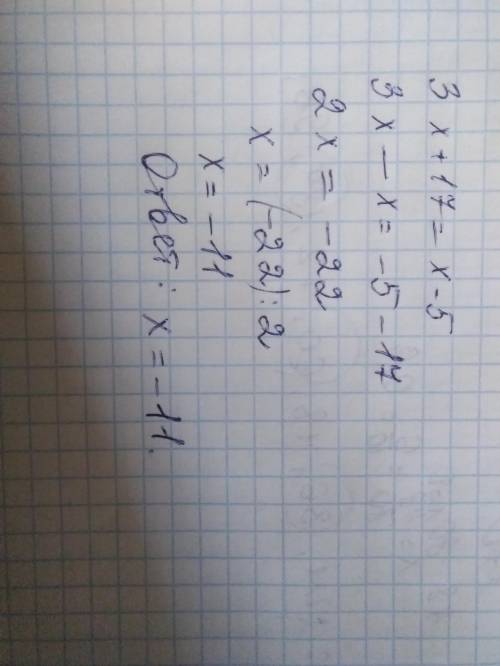 3x+17=x-5
3x-x=-5-17
2x=-22
x=(-22):2
x=-11
Ответ: x=-11.